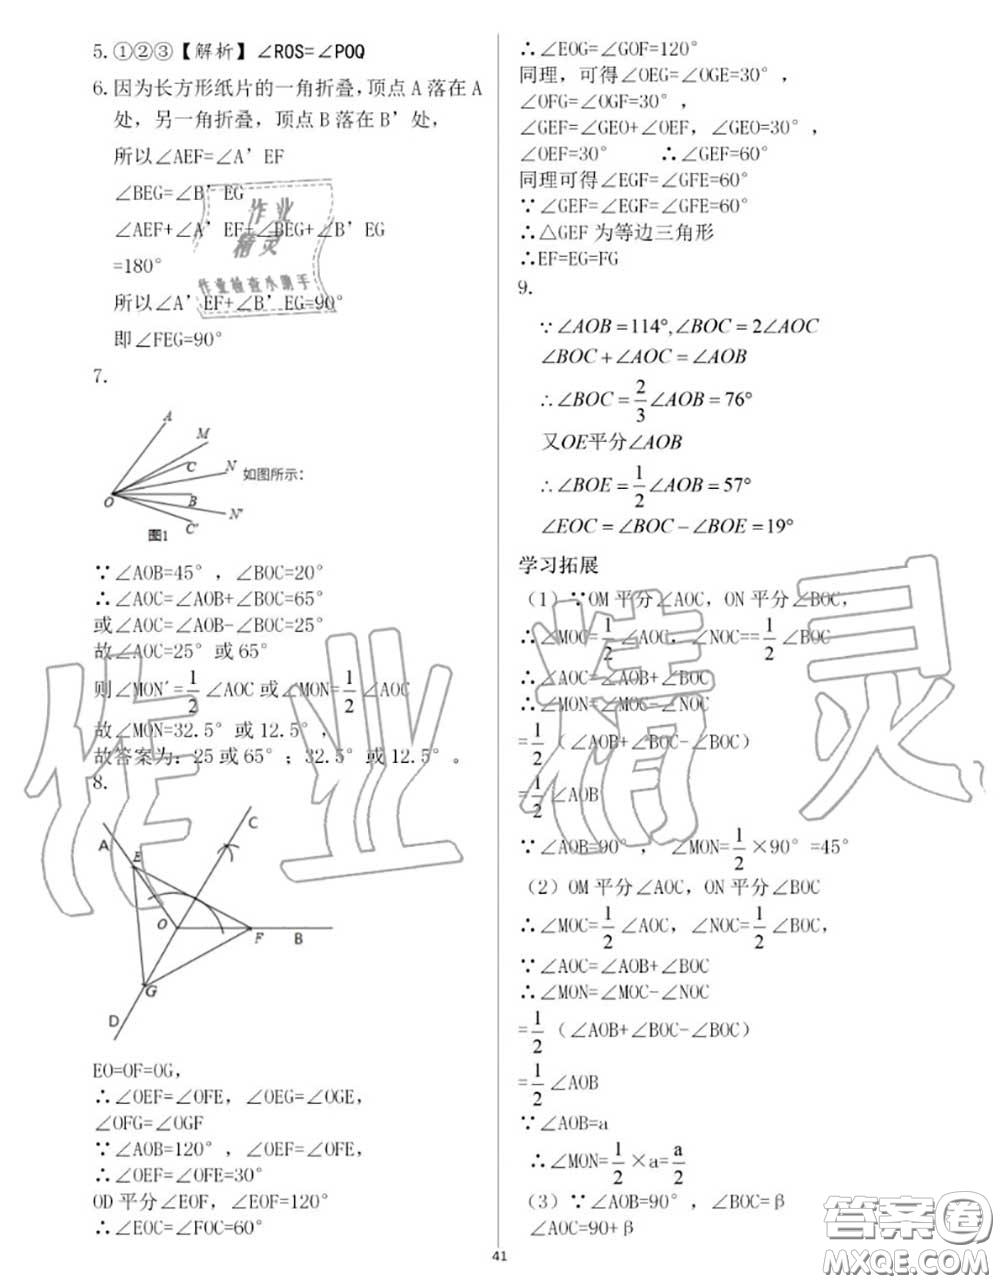 5. ①②③【解析】∠ROS=∠POQ
6. 因为长方形纸片的一角折叠,顶点 A 落在 A
处，另一角折叠，顶点 B 落在 B’处，
所以∠AEF=∠A’EF
∠BEG=∠B’EG
∠AEF+∠A’EF+∠BEG+∠B’EG
=180°
所以∠A’EF+∠B’EG=90°
即∠FEG=90°
7.
A
M
C
N
如图所示：
O
B
N'
C'
图1
∵∠AOB=45°，∠BOC=20°
∴∠AOC=∠AOB+∠BOC=65°
或∠AOC=∠AOB-∠BOC=25°
故∠AOC=25°或 65°
则∠MON′=1/2∠AOC 或∠MON=1/2∠AOC
故∠MON=32.5°或 12.5°，
故答案为：25 或 65°；32.5°或 12.5°。
8.
A
E
C
O
F
B
G
D
EO=OF=OG，
∴∠OEF=∠OFE，∠OEG=∠OGE，
∠OFG=∠OGF
∵∠AOB=120°，∠OEF=∠OFE，
∴∠OEF=∠OFE=30°
OD 平分∠EOF，∠EOF=120°
∴∠EOC=∠FOC=60°
∴∠EOG=∠GOF=120°
同理，可得∠OEG=∠OGE=30°，
∠OFG=∠OGF=30°，
∠GEF=∠GEO+∠OEF，∠GEO=30°，
∠OEF=30° ∴∠GEF=60°
同理可得∠EGF=∠GFE=60°
∵∠GEF=∠EGF=∠GFE=60°
∴△GEF 为等边三角形
∴EF=EG=FG
9.
∵∠AOB=114°,∠BOC=2∠AOC
∠BOC+∠AOC=∠AOB
∴∠BOC=2/3∠AOB=76°
又OE平分∠AOB
∴∠BOE=1/2∠AOB=57°
∠EOC=∠BOC-∠BOE=19°
学习拓展
（1）∵OM 平分∠AOC，ON 平分∠BOC，
∴∠MOC=1/2∠AOC，∠NOC==1/2∠BOC
∴∠AOC=∠AOB+∠BOC
∴∠MON=∠MOC-∠NOC
=1/2（∠AOB+∠BOC-∠BOC）
=1/2∠AOB
∵∠AOB=90°，∠MON=1/2×90°=45°
（2）OM 平分∠AOC，ON 平分∠BOC
∴∠MOC=1/2∠AOC，∠NOC=1/2∠BOC，
∵∠AOC=∠AOB+∠BOC
∴∠MON=∠MOC-∠NOC
=1/2（∠AOB+∠BOC-∠BOC）
=1/2∠AOB
∵∠AOB=a
∴∠MON=1/2×a=a/2
（3）∵∠AOB=90°，∠BOC=β
∠AOC=90+β
41
作业
精灵
作业检查小助手
作业精灵
答案圈
MXQE.COM